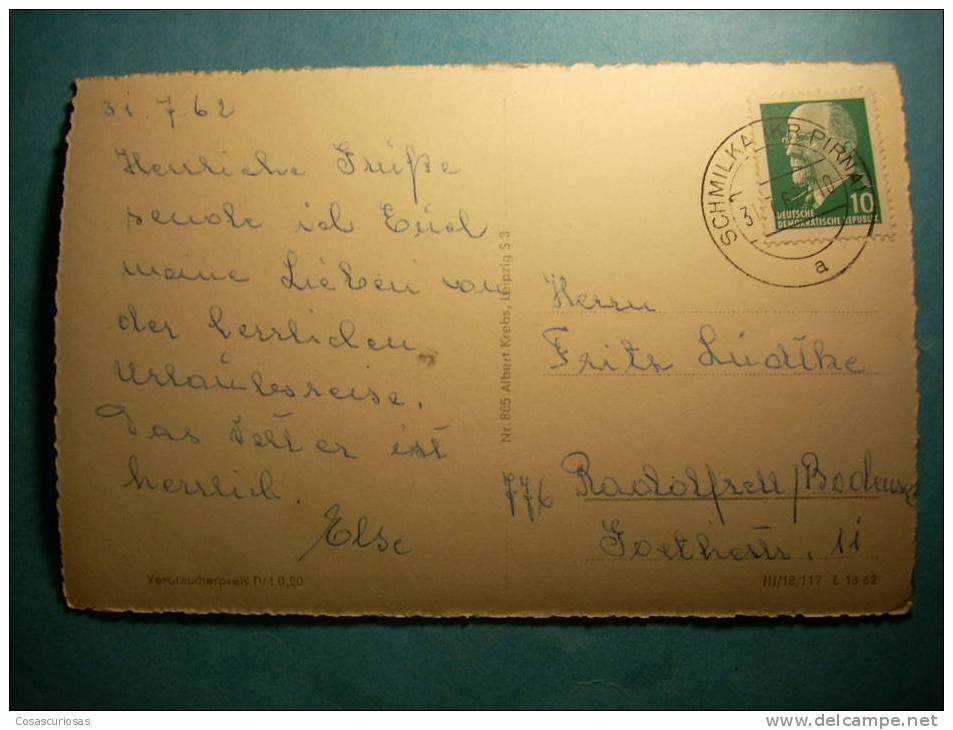 31.7.62
Herrliche Grüße
sende ich Euch
meine Lieben von
der herrlichen
Urlaubsreise.
Das Wetter ist
herrlich.
Else
Verbraucherpreis DM 0,20
Nr. 865 Albert Krebs, Leipzig S 3
SCHMILKA (KR. PIRNA)
a
10
DEUTSCHE
DEMOKRATISCHE REPUBLIK
Herrn
Fritz Lüdtke
776 Radolfzell/Bodensee
Goethestr. 11
III/18/117 L 18 62
Cosascuriosas
www.delcampe.net